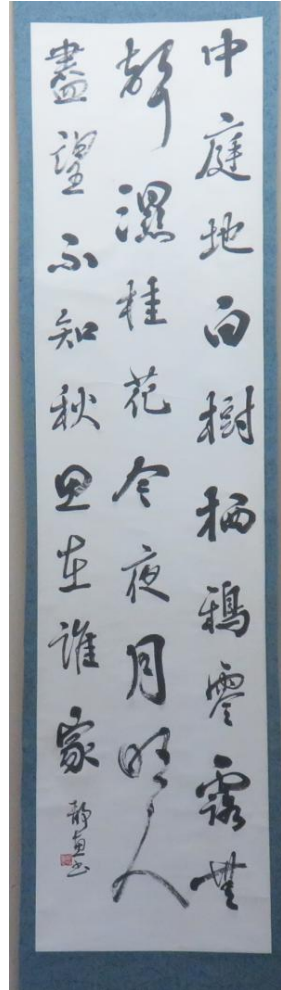 中庭地白樹栖鴉零露無
聲濕桂花今夜月明人
盡望不知秋思在誰家
書